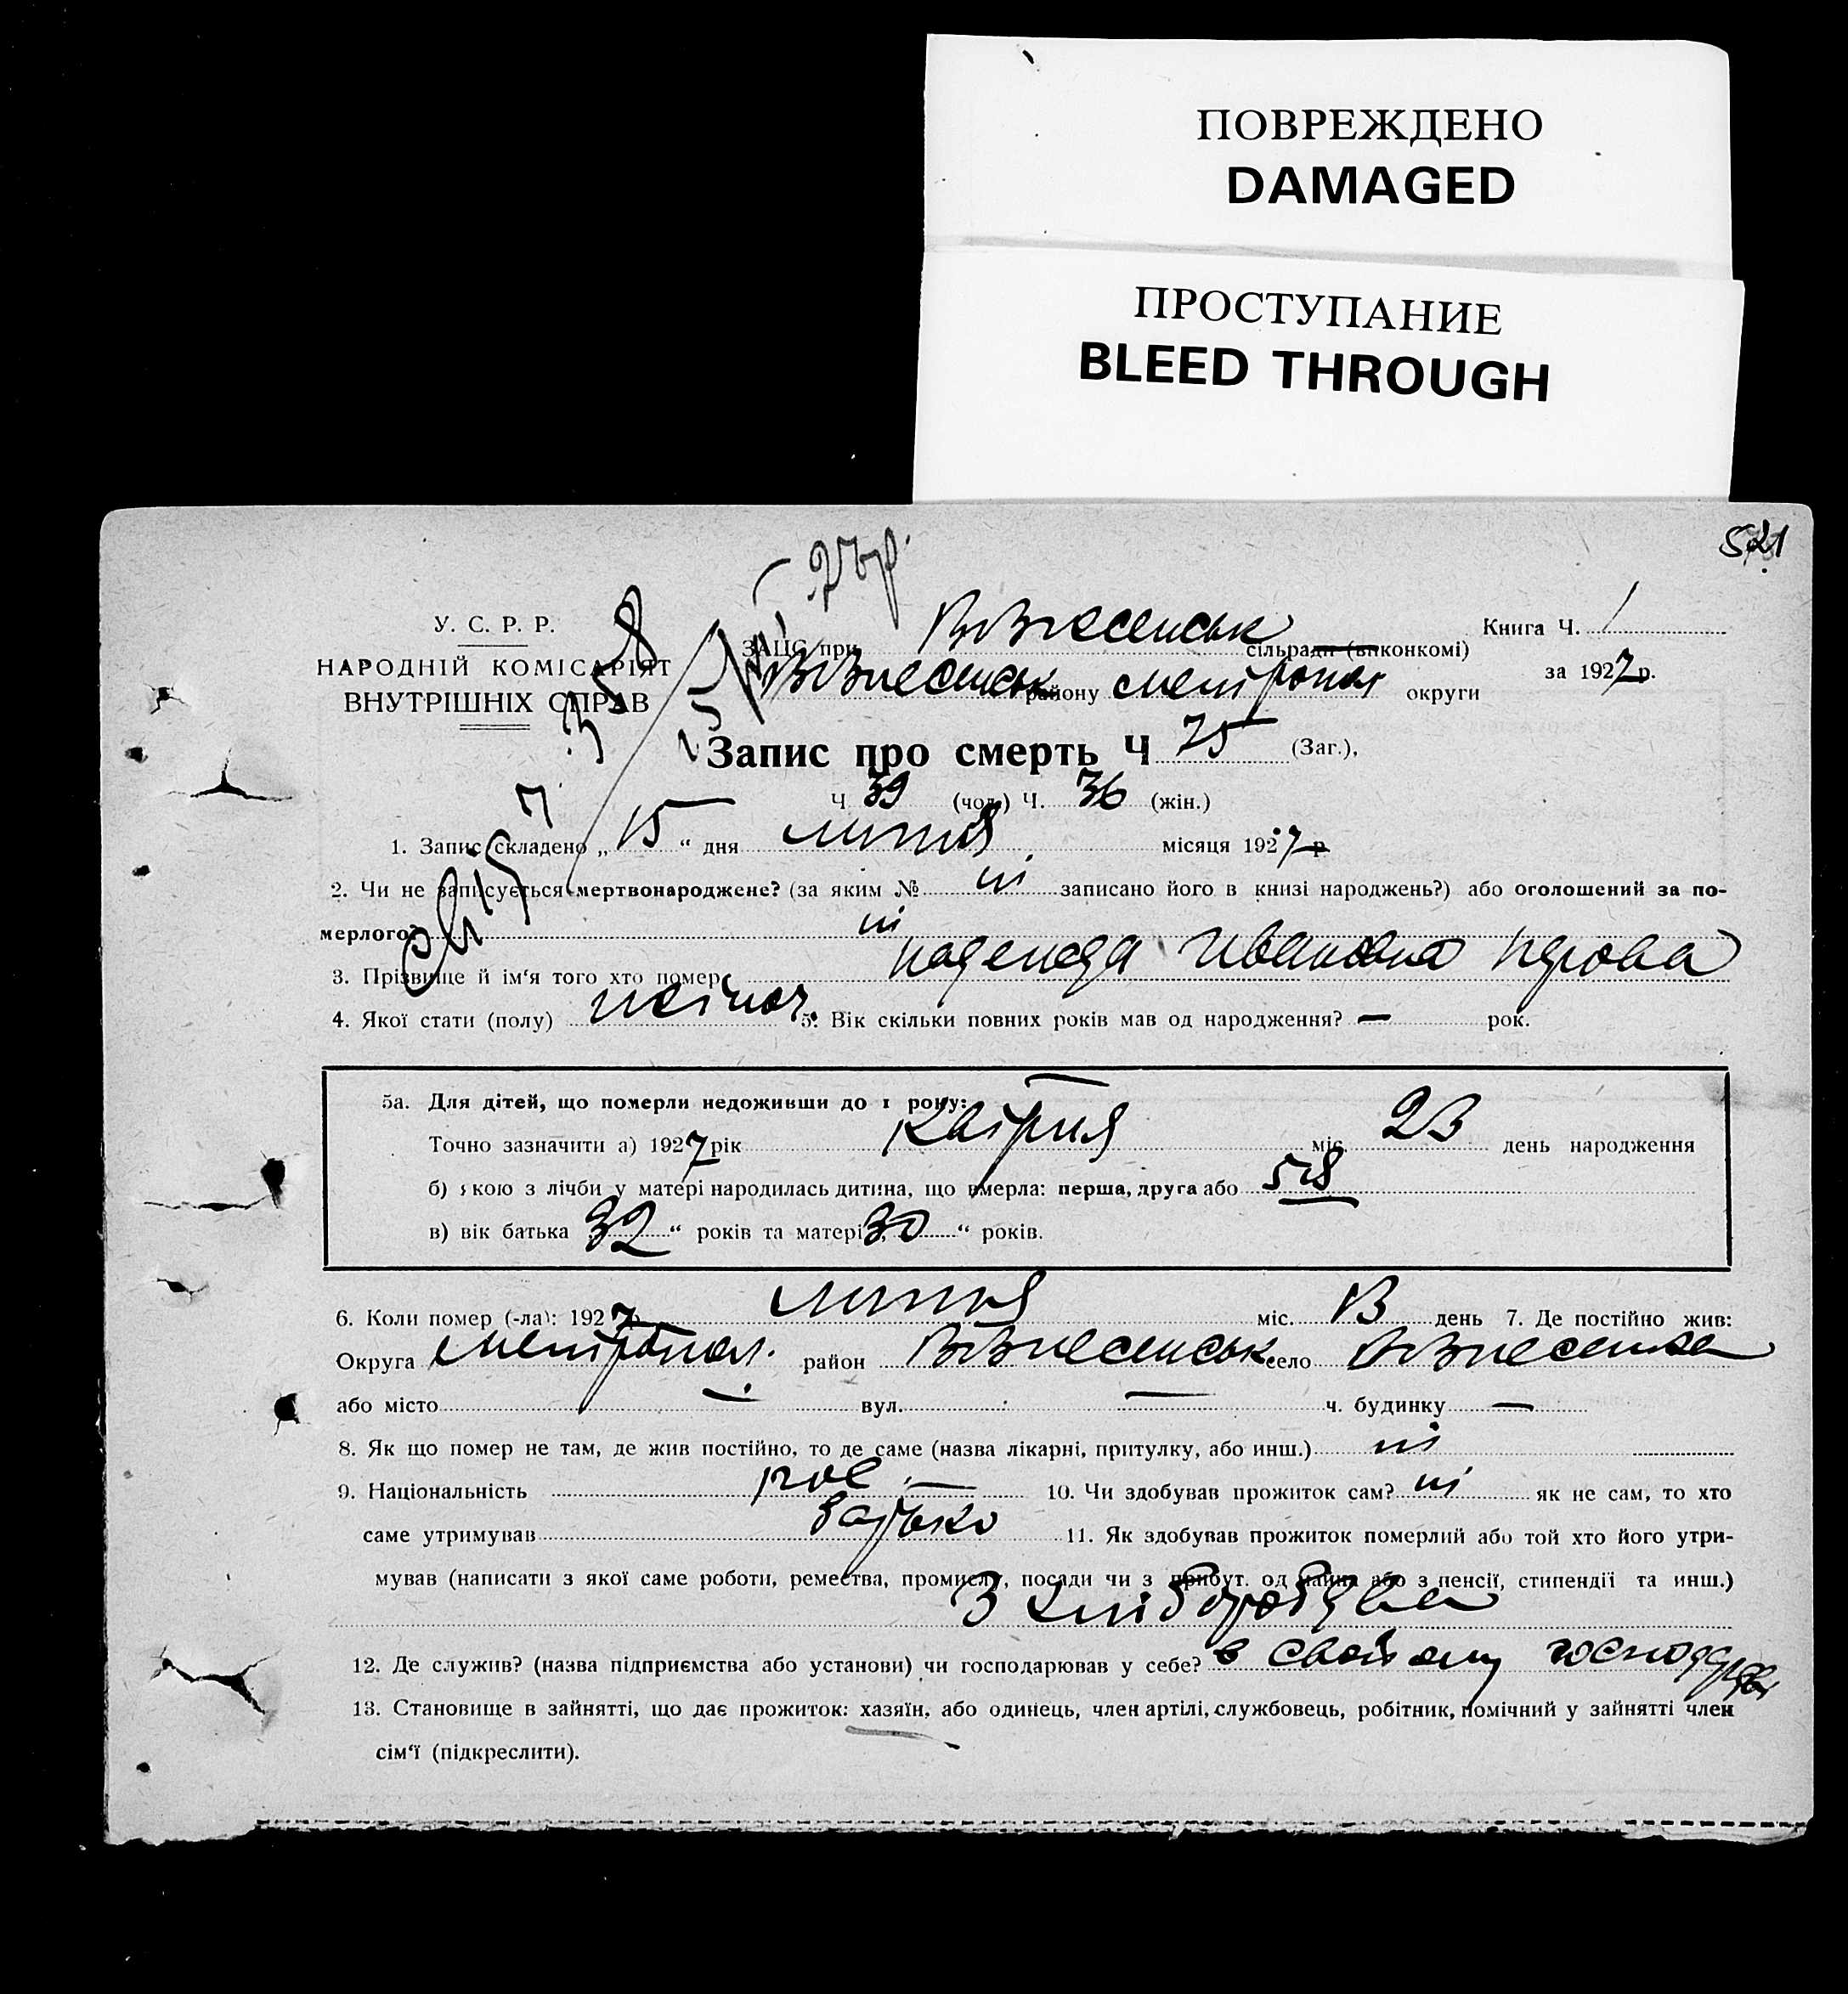 ПОВРЕЖДЕНО
DAMAGED
ПРОСТУПАНИЕ
BLEED THROUGH
521
У. С. Р. Р.
НАРОДНІЙ КОМІСАРІЯТ
ВНУТРІШНІХ СПРАВ
ЗАЦС при Вознесенськ сільради (виконкомі)
Книга Ч. 1
Вознесенськ району Мелітопол округи
за 1927 р.
Запис про смерть Ч 75 (Заг.),
Ч 39 (чол.) Ч. 36 (жін.)
1. Запис складено „ 15 “ дня липня місяця 1927 р
2. Чи не записується мертвонароджене? (за яким № ні записано його в книзі народжень?) або оголошений за по-
мерлого? ні
3. Прізвище й ім'я того хто помер Надежда Ивановна
4. Якої стати (полу) жіноч. 5. Вік скільки повних років мав од народження? — рок.
5а. Для дітей, що померли недоживши до 1 року:
Точно зазначити а) 1927 рік квітня міс. 23 день народження
б) якою з лічби у матері народилась дитина, що вмерла: перша, друга або
в) вік батька 32 “ років та матері „ 30 “ років.
6. Коли помер (-ла): 1927 р. липня міс. 13 день 7. Де постійно жив:
Округа Мелітопол. район Вознесенськ село Вознесенка
або місто — вул. — ч. будинку —
8. Як що помер не там, де жив постійно, то де саме (назва лікарні, притулку, або инш.) ні
9. Національність рос. — 10. Чи здобував прожиток сам? ні як не сам, то хто
саме утримував батько 11. Як здобував прожиток померлий або той хто його утри-
мував (написати з якої саме роботи, ремества, промислу, посади чи з прибут. од майна або з пенсії, стипендії та инш.)
З хліборобства
12. Де служив? (назва підприємства або установи) чи господарював у себе? в свойому
13. Становище в зайнятті, що дає прожиток: хазяїн, або одинець, член артілі, службовець, робітник, помічний у зайнятті член
сім'ї (підкреслити).